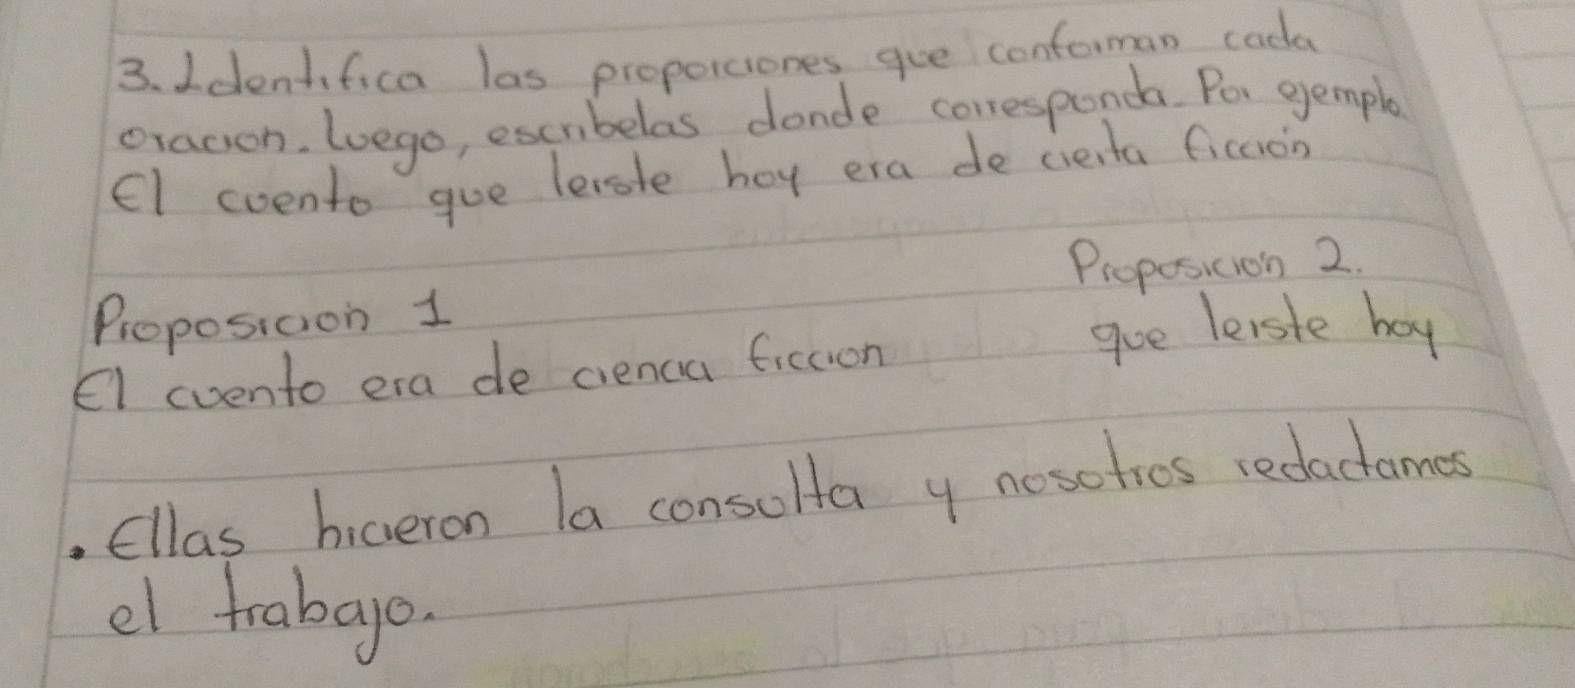 3. Identifica las proporciones que conforman cada
oracion. Luego, escribelas donde corresponda. Por ejemplo.
El cuento que leiste hoy era de cierta ficción
Proposición 2.
Proposicion 1
que leiste hoy
El cuento era de ciencia ficcion
. Ellas hicieron la consulta y nosotros redactamos
el trabajo.